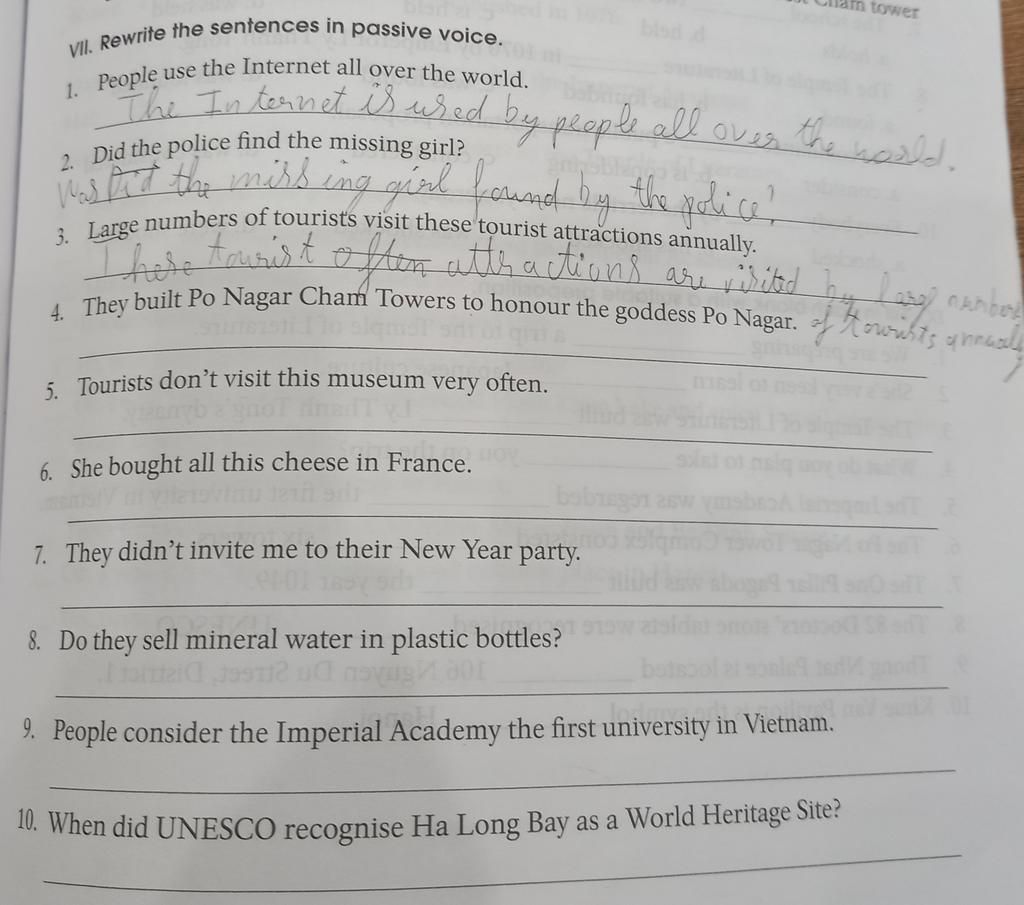 Cham tower
VII. Rewrite the sentences in passive voice.
1. People use the Internet all over the world.
The Internet is used by people all over the world.
2. Did the police find the missing girl?
Was Did the missing girl found by the police?
3. Large numbers of tourists visit these tourist attractions annually.
These tourist often attractions are visited by large numbers
of tourists annually
4. They built Po Nagar Cham Towers to honour the goddess Po Nagar.
5. Tourists don't visit this museum very often.
6. She bought all this cheese in France.
7. They didn't invite me to their New Year party.
8. Do they sell mineral water in plastic bottles?
9. People consider the Imperial Academy the first university in Vietnam.
10. When did UNESCO recognise Ha Long Bay as a World Heritage Site?